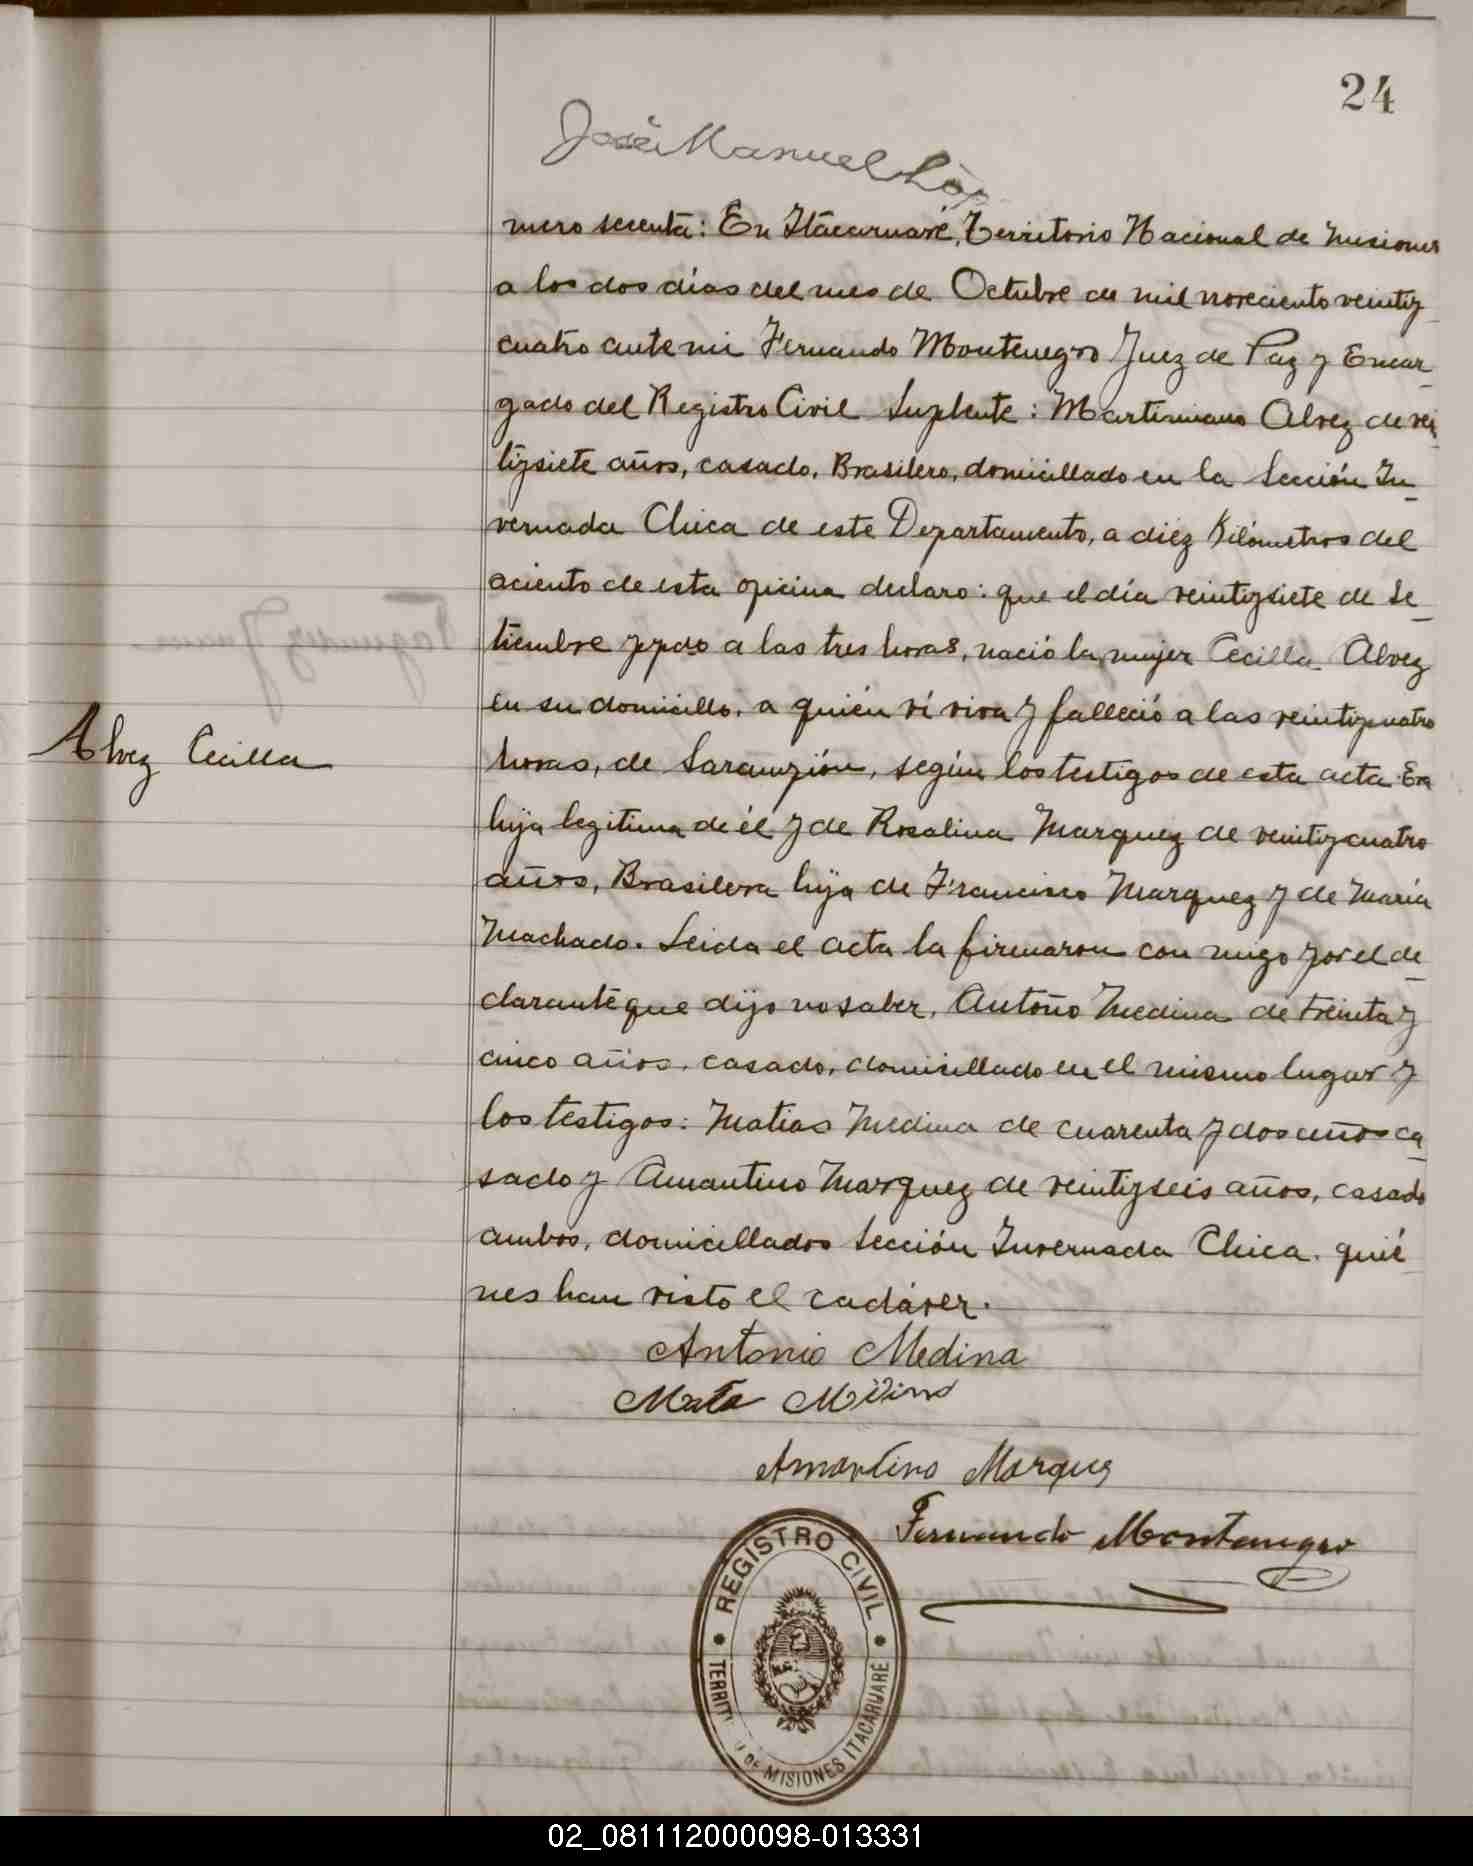 24
José Manuel Lóp
mero secenta: En Itacaruaré, Territorio Nacional de Misiones
a los dos días del mes de Octubre de mil noveciento veintiy
cuatro ante mi Fernando Montenegro Juez de Paz y Encar_
gado del Registro Civil Suplente: Martimiano Alvez de vei
tiysiete años, casado, Brasilero, domicillado en la Sección In_
vernada Chica de este Departamento, a diéz Kilómetros del
aciento de esta oficina declaro: que el día veintiysiete de Se_
tiembre ppdo a las tres horas, nació la mujer Cecilla Alvez
en su domicillo, a quién ví viva y falleció a las veintiycuatro
horas, de Sarampión, según los testigos de esta acta. Era
hija legitima de él y de Rosalina Marquez de veintiycuatro
años, Brasilera hija de Francisco Marquez y de María
Machado. Leida el acta la firmaron con migo por el de_
clarante que dijo no saber, Antoño Medina de treinta y
cinco años, casado, domicillado en el mismo lugar y
los testigos: Matias Medina de cuarenta y dos años ca_
sado y Amantino Marquez de veintiyseis años, casado
ambos, domicillados Sección Invernada Chica. quié_
nes han visto el cadáver.
Alvez Cecilla
Antonio Medina
Mata Midina
Amantino Marques
Fernando Montenegro
REGISTRO CIVIL
TERRIT DE MISIONES ITACARUARÉ
02_081112000098-013331